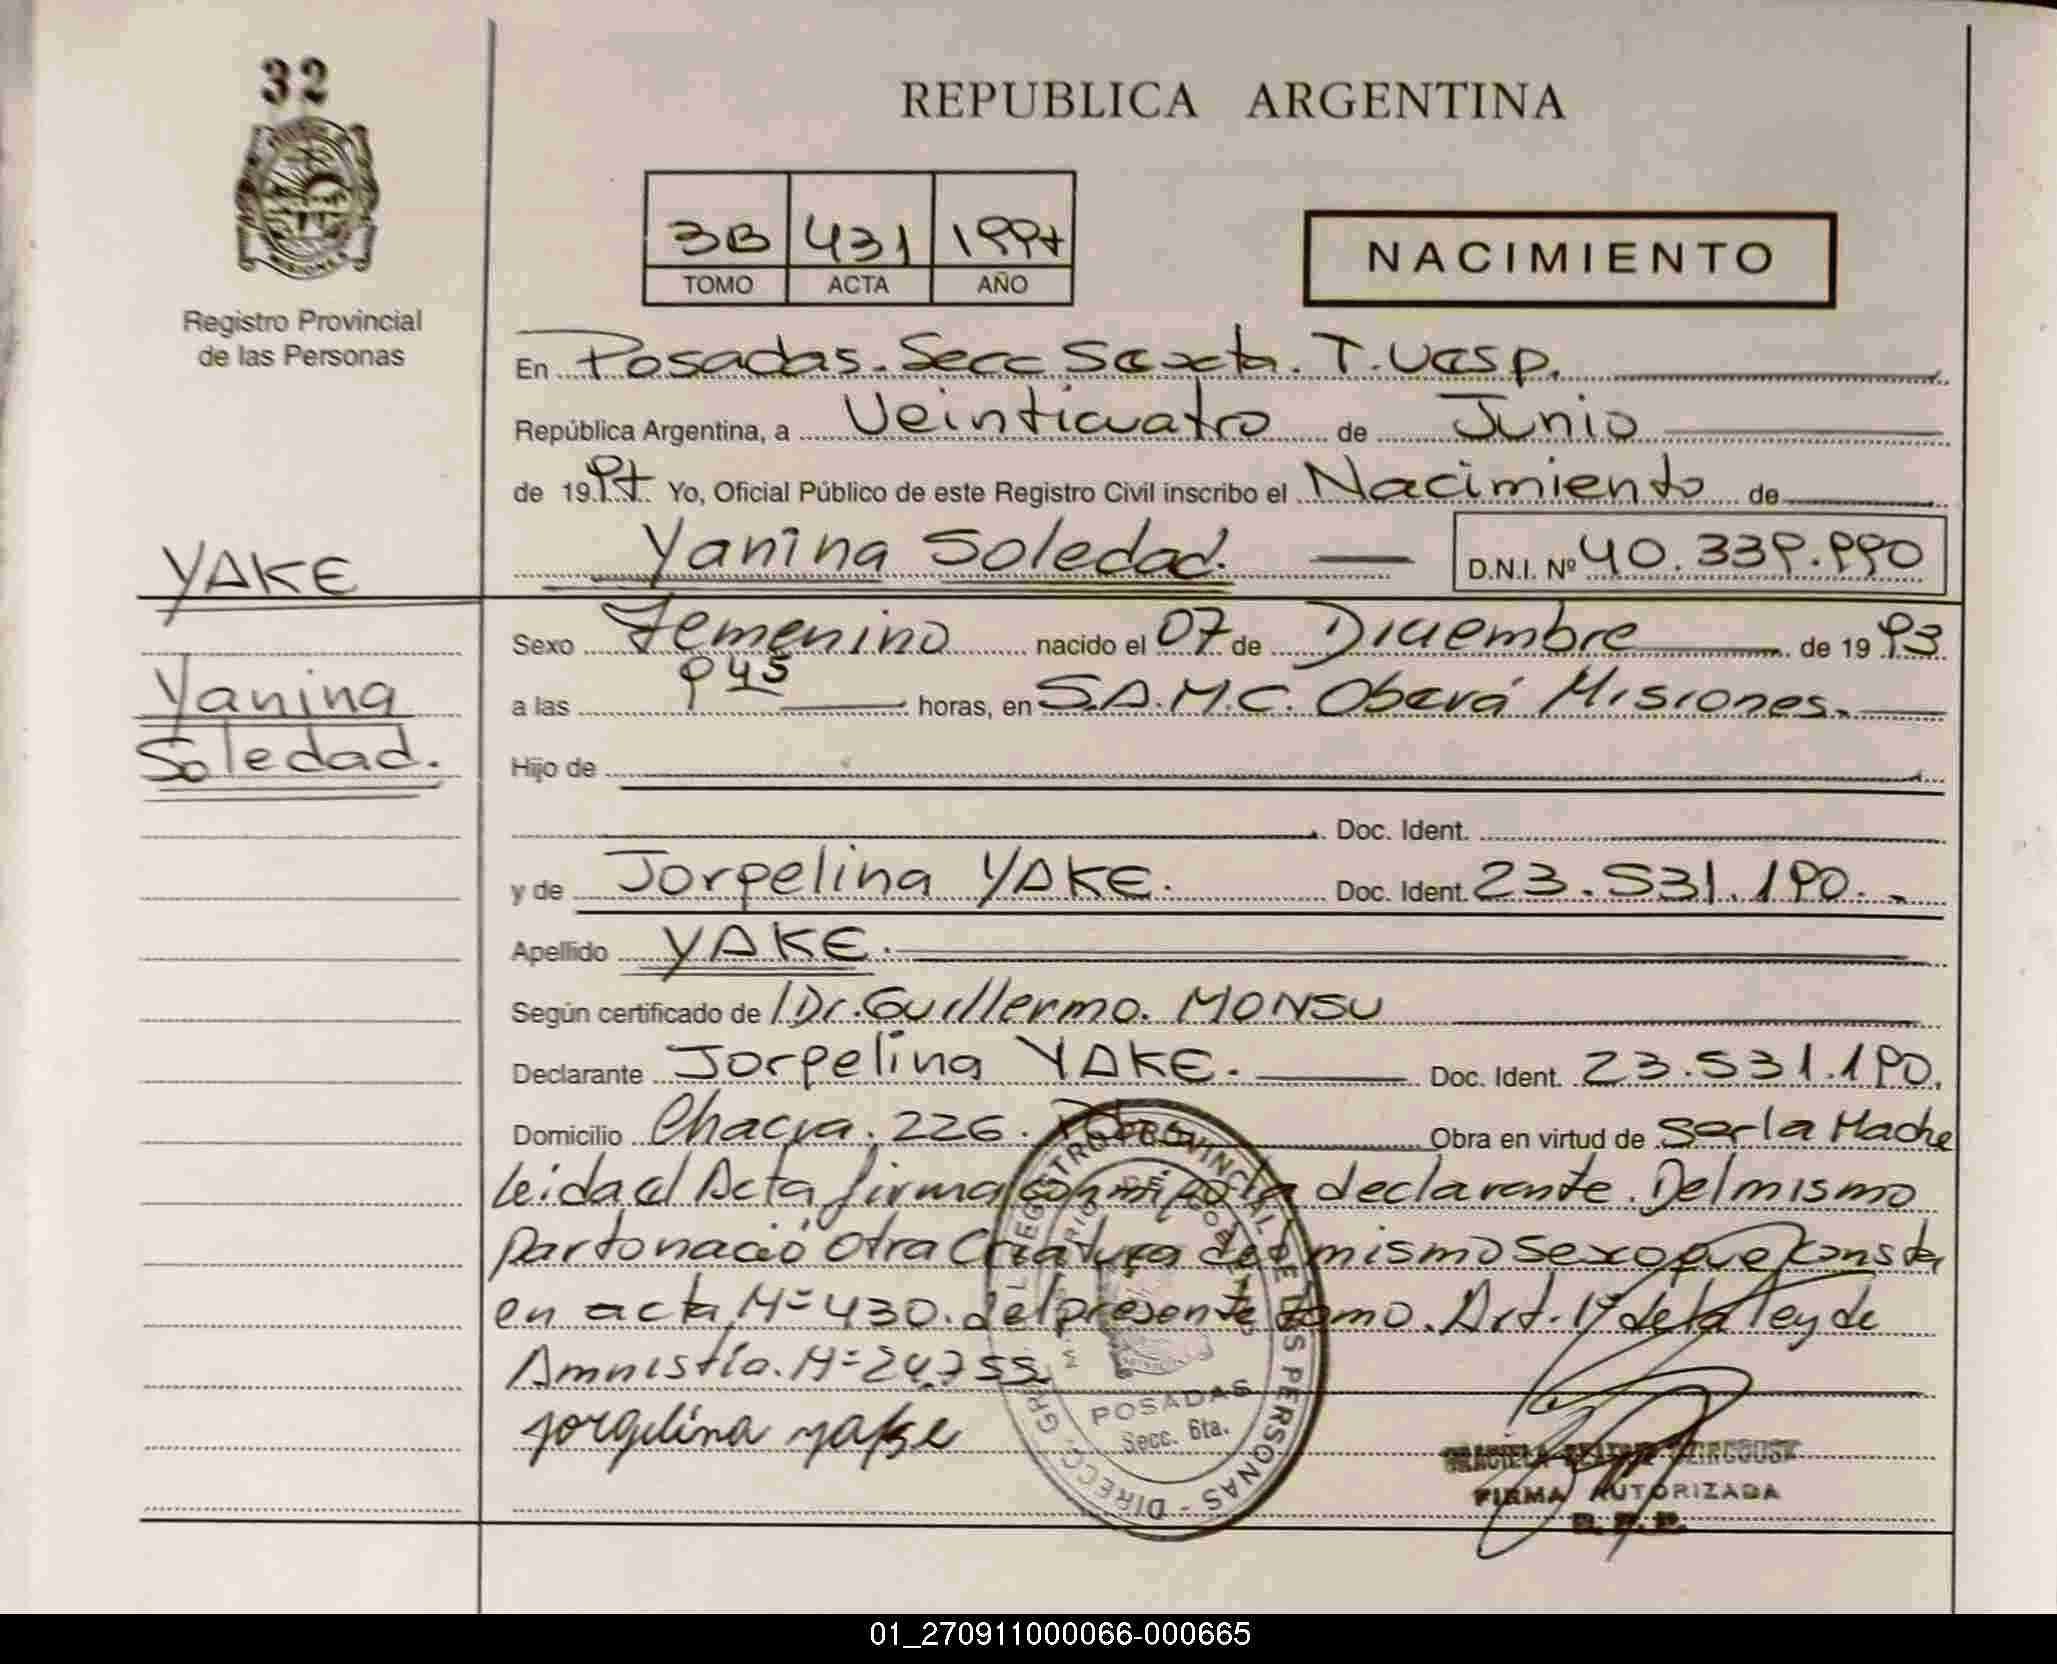 32
REPUBLICA ARGENTINA
3B 431 1997
TOMO ACTA AÑO
NACIMIENTO
MISIONES
Registro Provincial
de las Personas
En Posadas. Secc Sexta. T. Vesp.
República Argentina, a Veinticuatro de Junio
de 1997 Yo, Oficial Público de este Registro Civil inscribo el Nacimiento de
Yanina Soledad. D.N.I. Nº 40.339.990
YAKE
Yanina
Soledad.
Sexo Femenino nacido el 07 de Diciembre de 1993
a las 9 45 horas, en S.A.M.C. Oberá Misiones.
Hijo de
Doc. Ident.
y de Jorgelina YAKE. Doc. Ident. 23.531.190.
Apellido YAKE.
Según certificado de Dr. Guillermo. MONSU
Declarante Jorgelina YAKE. Doc. Ident. 23.531.190.
Domicilio Chacra. 226. Pdas Obra en virtud de ser la Madre
leida el Acta firma conmigo la declarante. Del mismo
parto nació otra Criatura del mismo sexo que consta
en acta Nº 430. del presente tomo. Art. 1º de la ley de
Amnistía. Nº 24.755
Jorgelina yake
REGISTRO PROVINCIAL DE LAS PERSONAS - DIRECC. GRAL.
POSADAS
Secc. 6ta.
GRACIELA
FIRMA AUTORIZADA
01_270911000066-000665